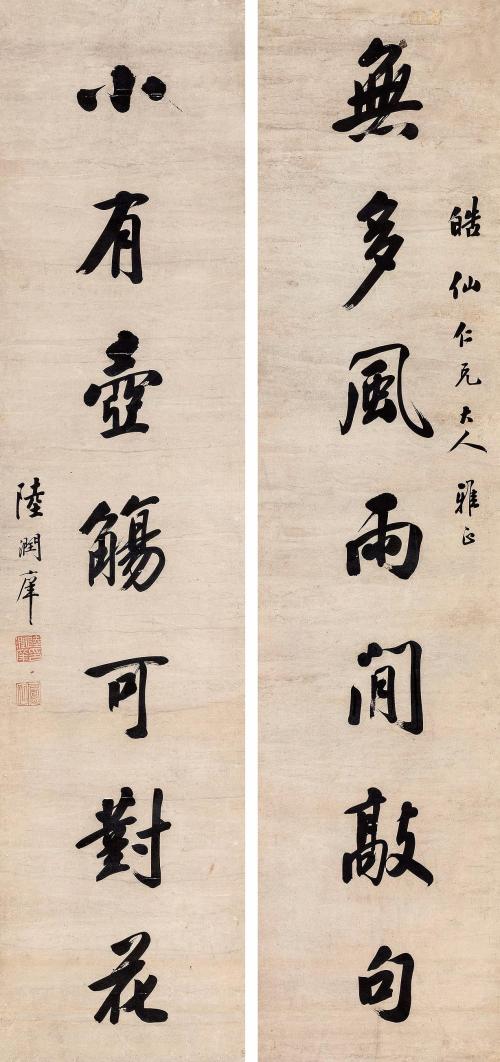 皓仙仁兄大人雅正
無多風雨閒敲句
小有壺觴可對花
陸潤庠